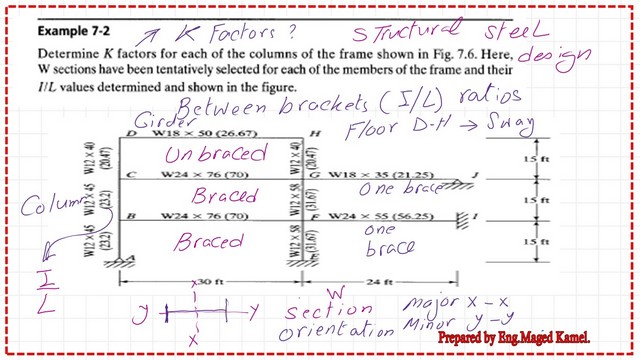 Example 7-2
K Factors ?
Structural steel
design
Determine K factors for each of the columns of the frame shown in Fig. 7.6. Here,
W sections have been tentatively selected for each of the members of the frame and their
I/L values determined and shown in the figure.
Between brackets (I/L) ratios
Girder
Floor D-H → Sway
D W18 × 50 (26.67) H
W12 × 40
(20.47)
Unbraced
W12 × 40
(20.47)
15 ft
C W24 × 76 (70) G W18 × 35 (21.25) J
Column
W12 × 45
(23.2)
Braced
W12 × 58
(31.67)
One brace
15 ft
B W24 × 76 (70) F W24 × 55 (56.25) I
W12 × 45
(23.2)
Braced
W12 × 58
(31.67)
one
brace
15 ft
A
I
L
30 ft 24 ft
x
y y
x
W
section
orientation
major x-x
Minor y-y
Prepared by Eng.Maged Kamel.